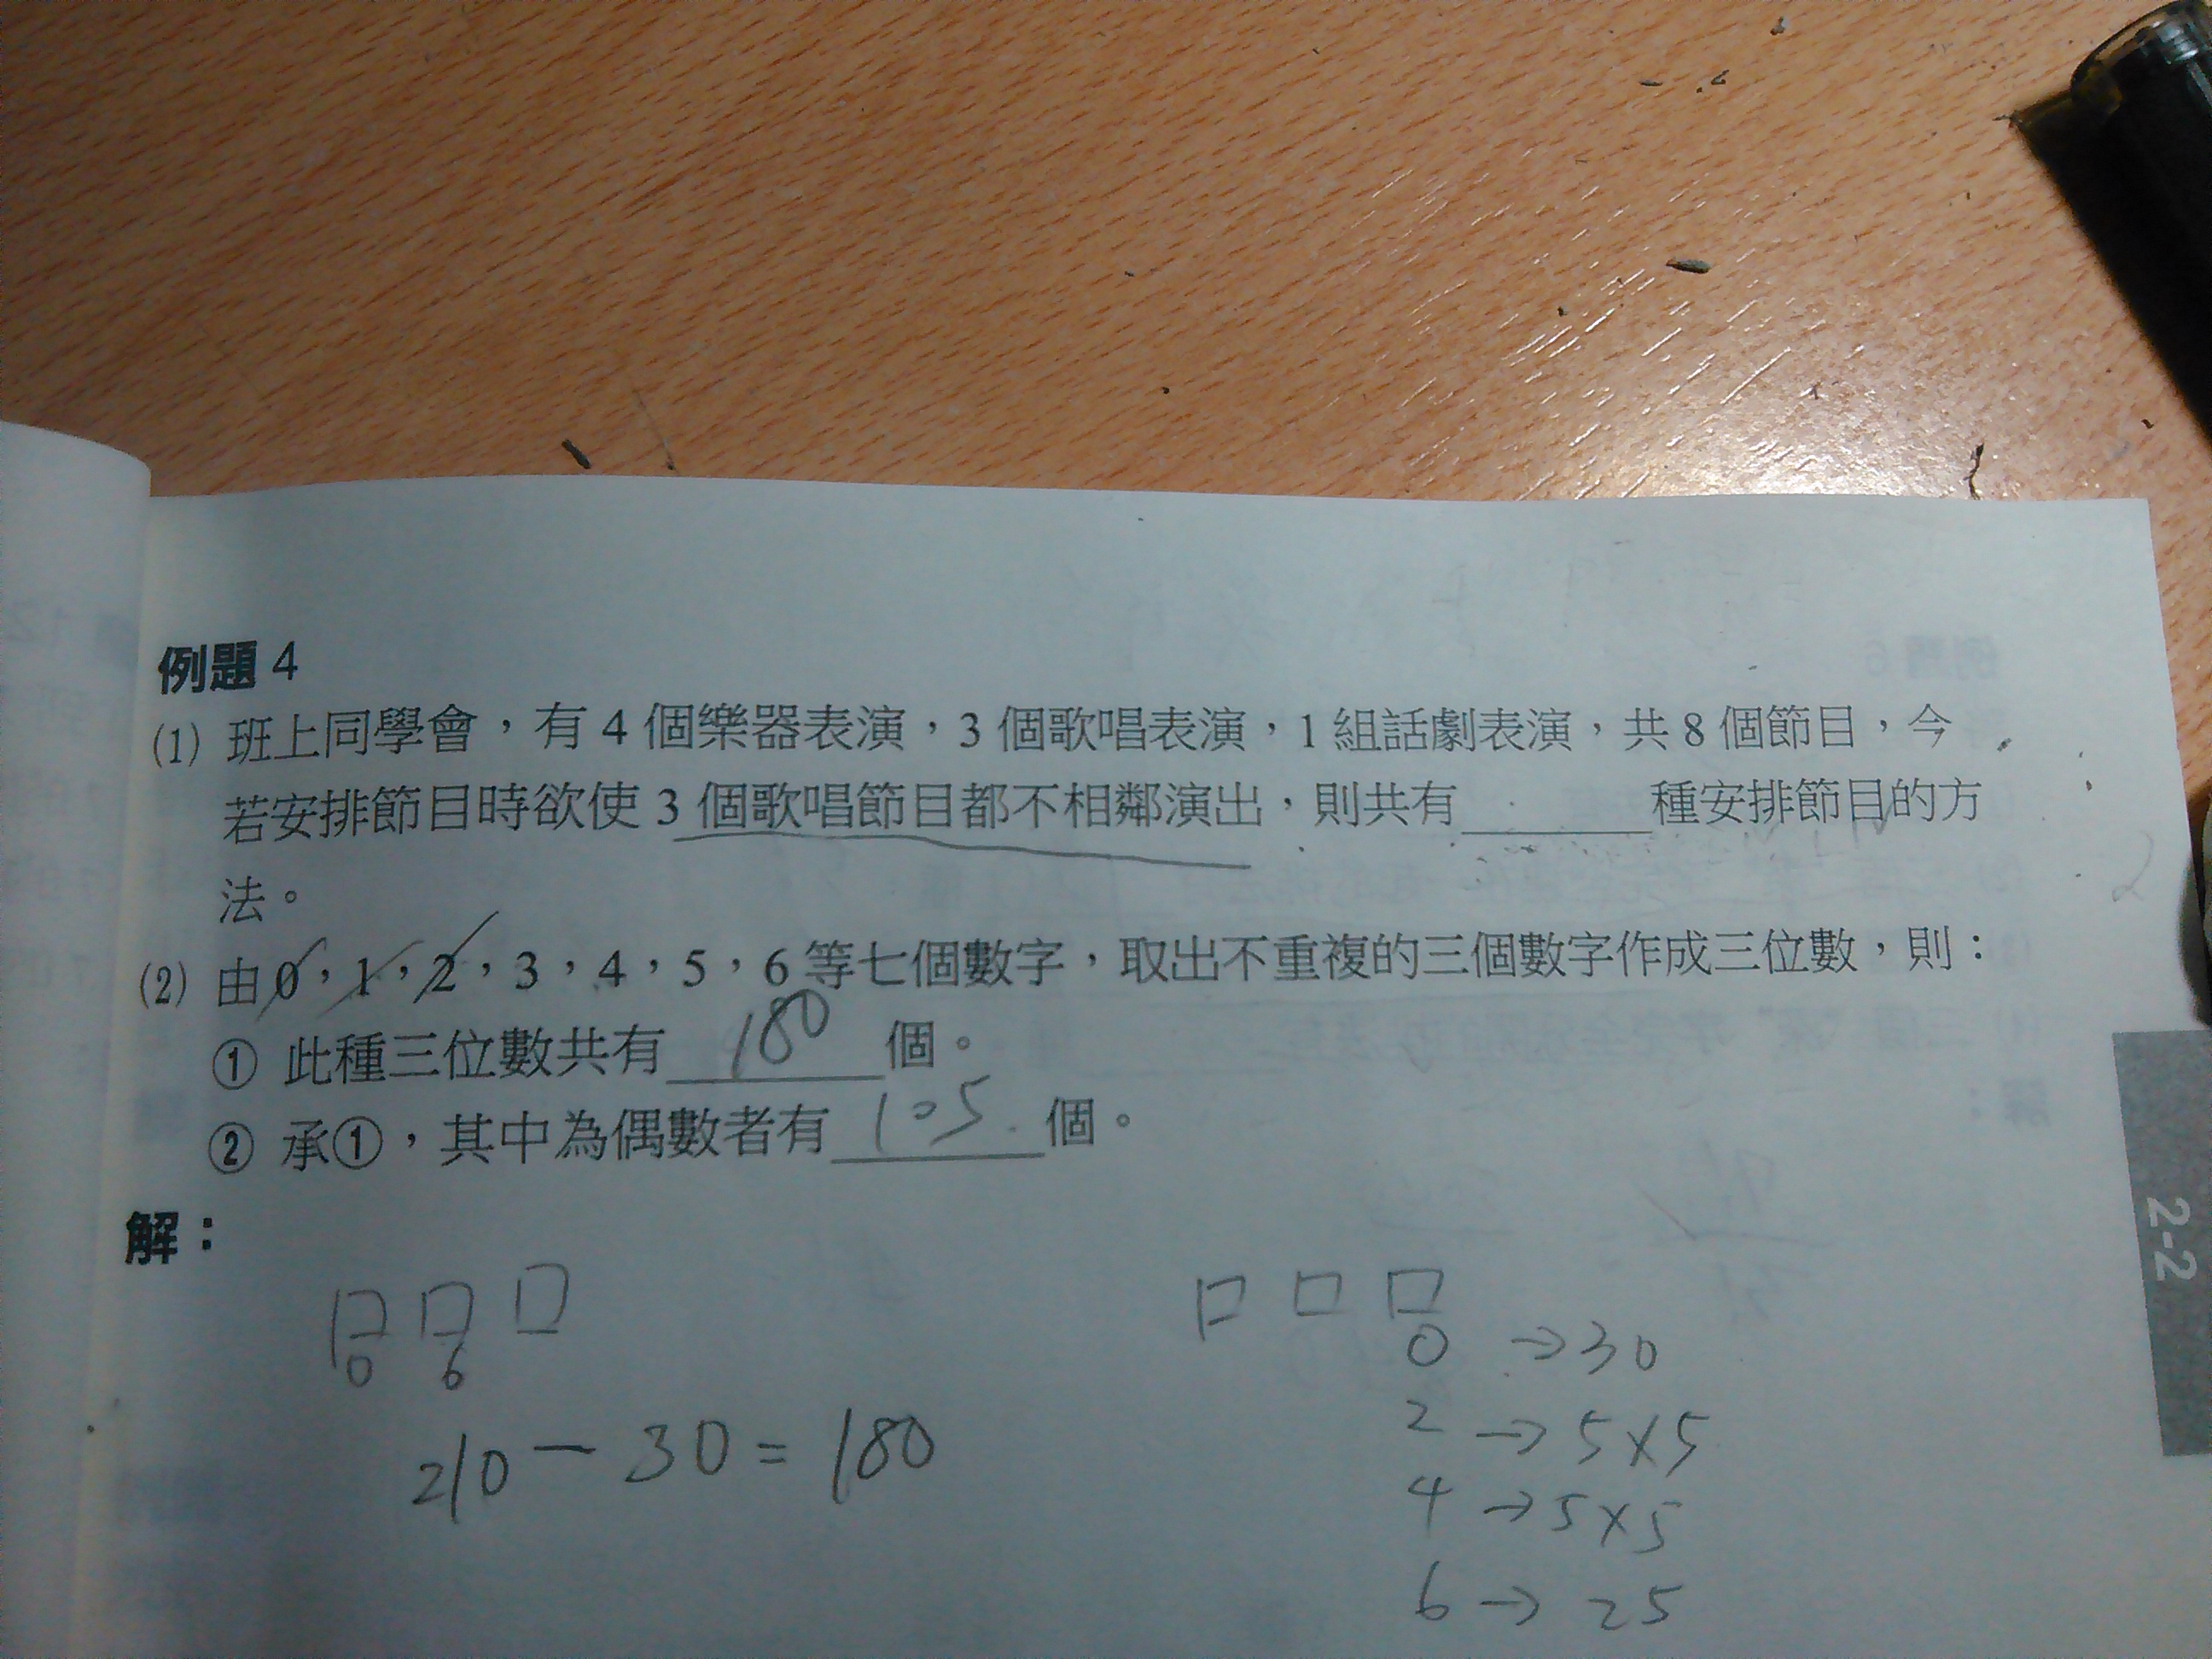 例題 4
(1) 班上同學會，有 4 個樂器表演，3 個歌唱表演，1 組話劇表演，共 8 個節目，今
若安排節目時欲使 3 個歌唱節目都不相鄰演出，則共有______種安排節目的方
法。
(2) 由 0，1，2，3，4，5，6 等七個數字，取出不重複的三個數字作成三位數，則：
① 此種三位數共有 180 個。
② 承①，其中為偶數者有 105 個。
解：
□ □ □
0 6
210 - 30 = 180
□ □ □
0 → 30
2 → 5×5
4 → 5×5
6 → 25
2-2